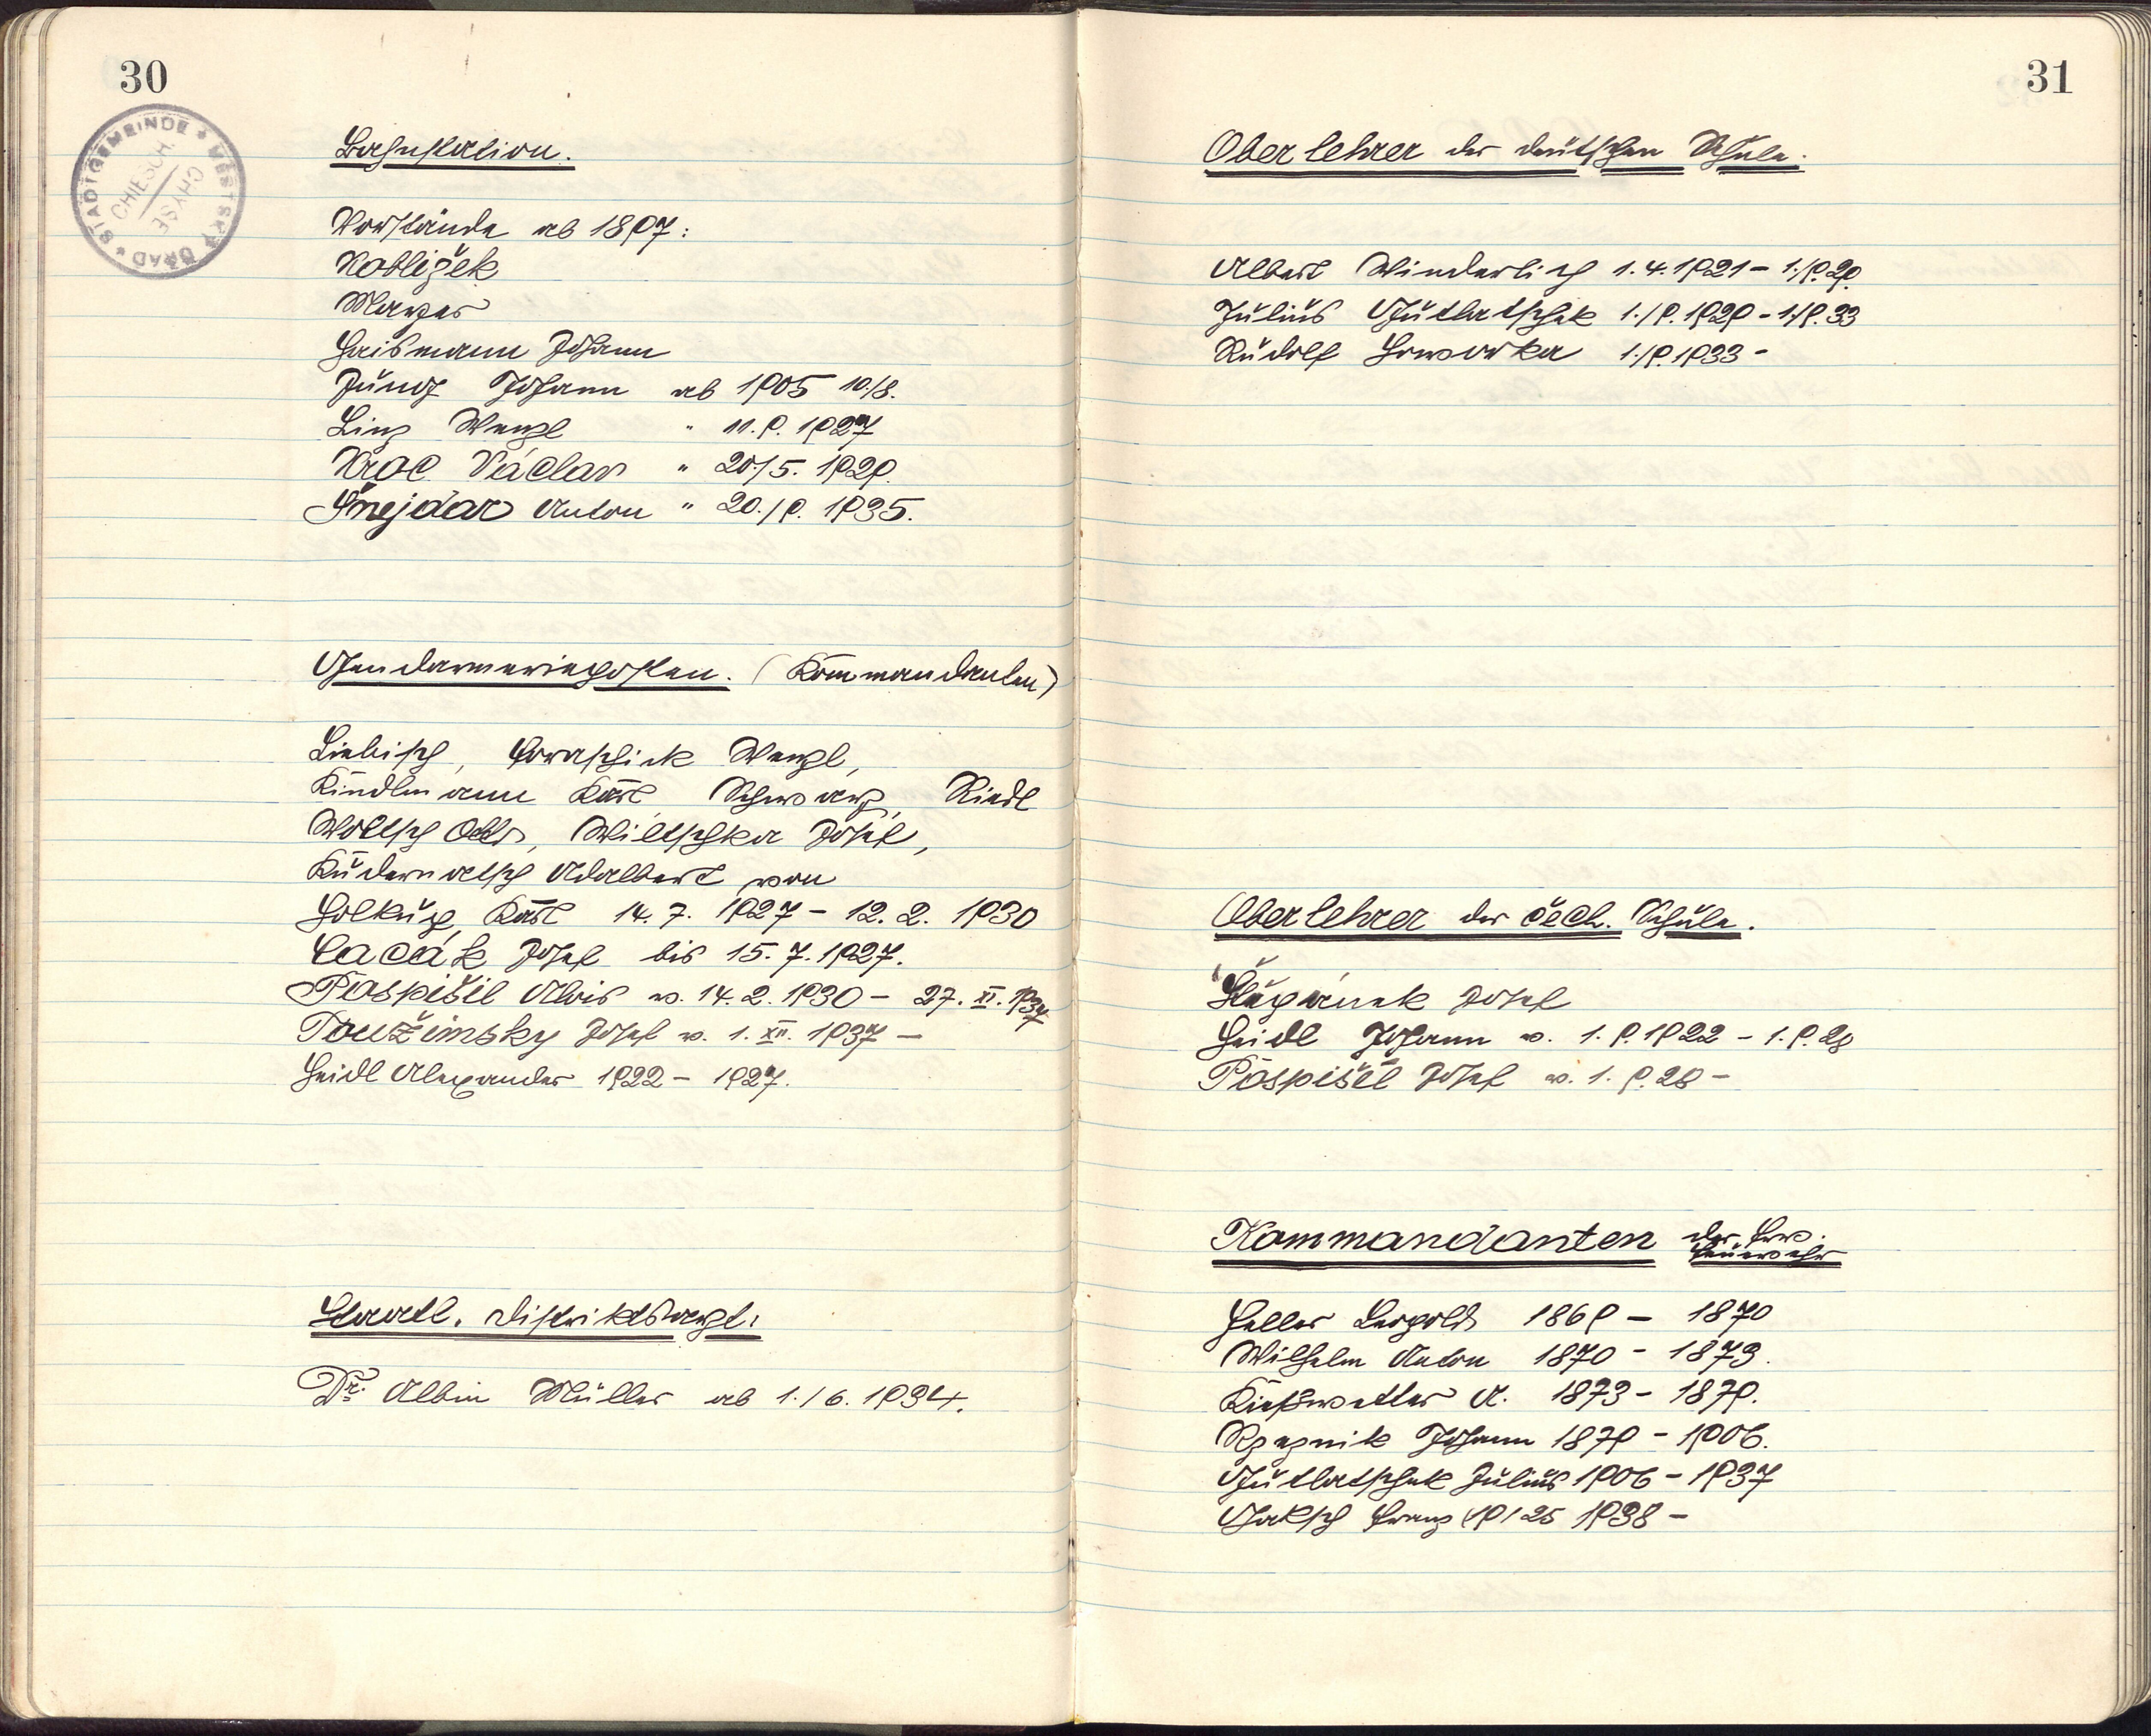 30
STADTGEMEINDE CHIESCH.
MĚSTSKÝ ÚŘAD CHYŠE
Bahnstation.
Vorstände ab 1897:
Kobližek
Mayer
Heismann Johann
Jung Johann ab 1905 10./8.
Linz Wenzl " 11.9.1927
Kroc Václav " 20./5. 1929.
Šnejdar Anton " 20./9. 1935.
Gendarmerieposten. (Kommandanten)
Liebisch, Foraschick Wenzl,
Kindlmann Karl, Schwarz, Riedl
Woltsch Otto, Wiltschka Josef,
Kudernatsch Adalbert von
Holkup, Karl 14.7. 1927 - 12.2. 1930
Cacák Josef bis 15.7.1927.
Pospíšil Alois v. 14.2.1930 - 27. XI. 1937
Toužimsky Josef v. 1. XII. 1937 -
Heidl Alexander 1922 - 1927.
Staatl. Distriktsarzt.
Dr. Albin Müller ab 1./6. 1934.
31
Oberlehrer der deutschen Schule.
Albert Winderlich 1.4.1921 - 1./9.29.
Julius Gutlatschek 1./9.1929 - 1./9.33
Rudolf Howorka 1./9.1933 -
Oberlehrer der čech. Schule.
Štěpánek Josef
Heidl Johann v. 1.9.1922 - 1.9.28
Pospíšil Josef v. 1.9.28 -
Kommandanten der Frw.
Feuerwehr
Heller Leopold 1869 - 1870
Wilhelm Anton 1870 - 1873.
Kießwetter A. 1873 - 1879.
Rzepnik Johann 1879 - 1906.
Gutlatschek Julius 1906 - 1937
Jaksch Franz 1938 -